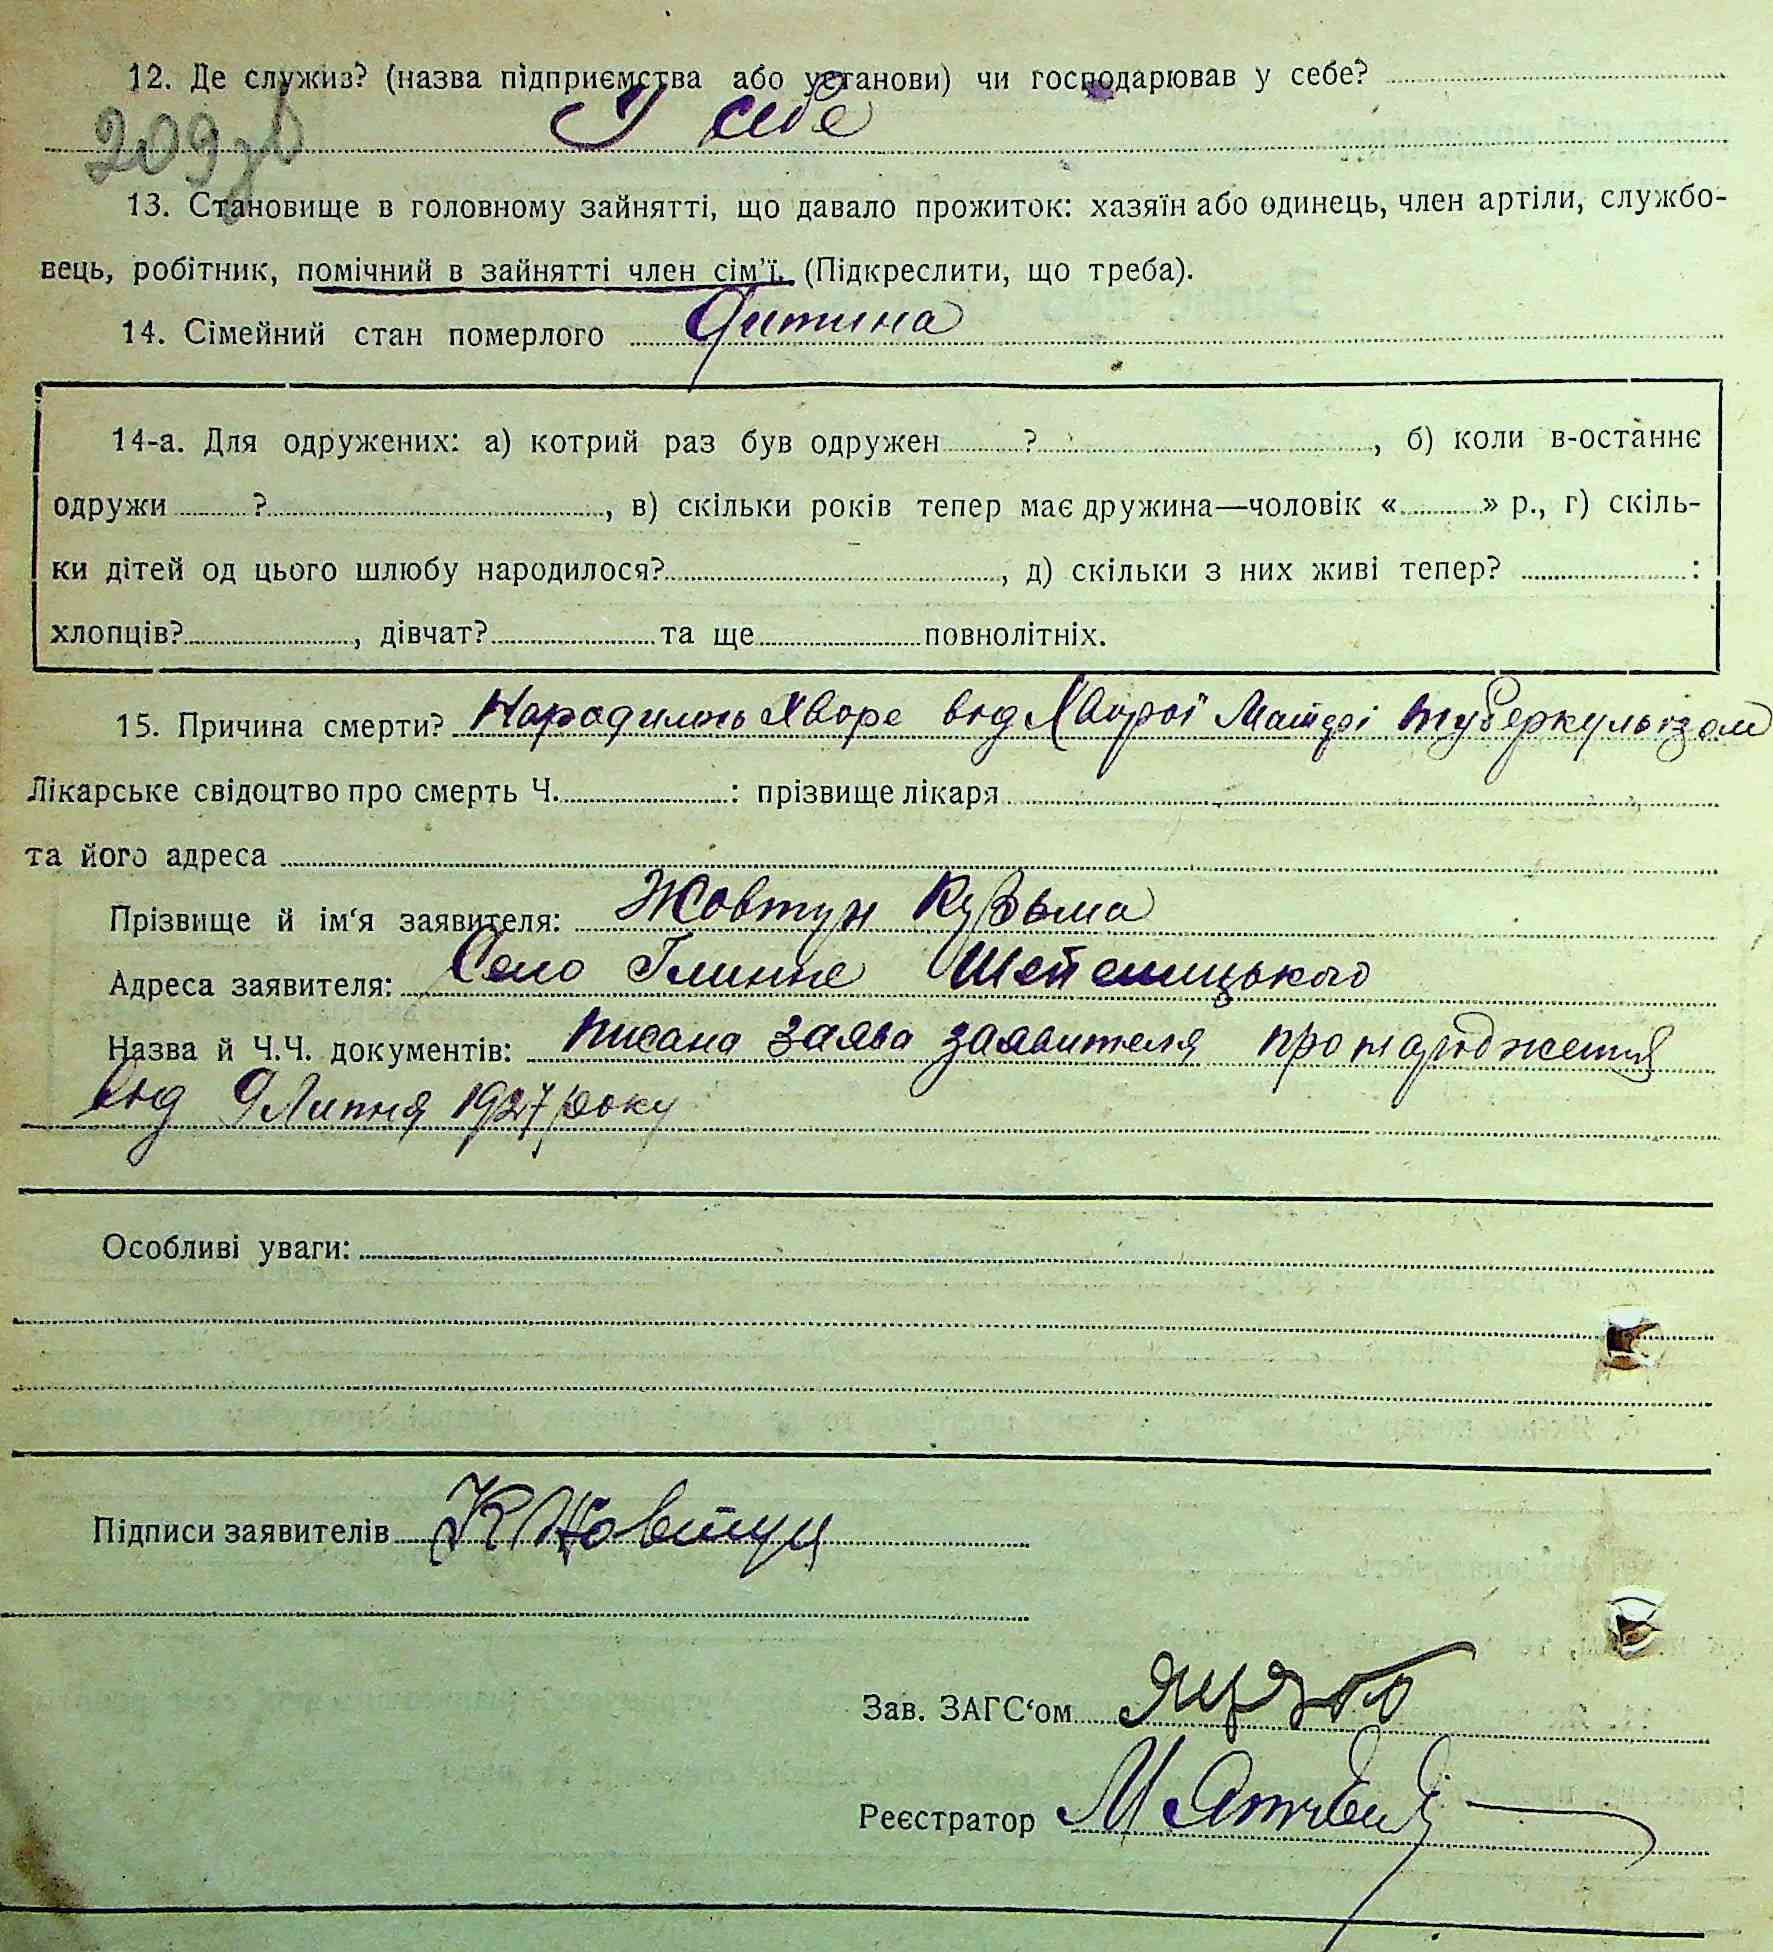 12. Де служив? (назва підприємства або установи) чи господарював у себе?
У себе
209зв
13. Становище в головному зайнятті, що давало прожиток: хазяїн або одинець, член артіли, службо-
вець, робітник, помічний в зайнятті член сім'ї. (Підкреслити, що треба).
14. Сімейний стан померлого Дитина
14-а. Для одружених: а) котрий раз був одружен ? , б) коли в-останнє
одружи ? , в) скільки років тепер має дружина—чоловік « » р., г) скіль-
ки дітей од цього шлюбу народилося? , д) скільки з них живі тепер? :
хлопців? , дівчат? та ще повнолітніх.
15. Причина смерти? Народилось хворе від хворої Матері туберкульозом
Лікарське свідоцтво про смерть Ч. : прізвище лікаря
та його адреса
Прізвище й ім'я заявителя: Жовтун Кузьма
Адреса заявителя: Село Глинне
Назва й Ч.Ч. документів: писана заява заявителя про народження
від 9 Липня 1927 року
Особливі уваги:
Підписи заявителів К Жовтун
Зав. ЗАГС'ом
Реєстратор М